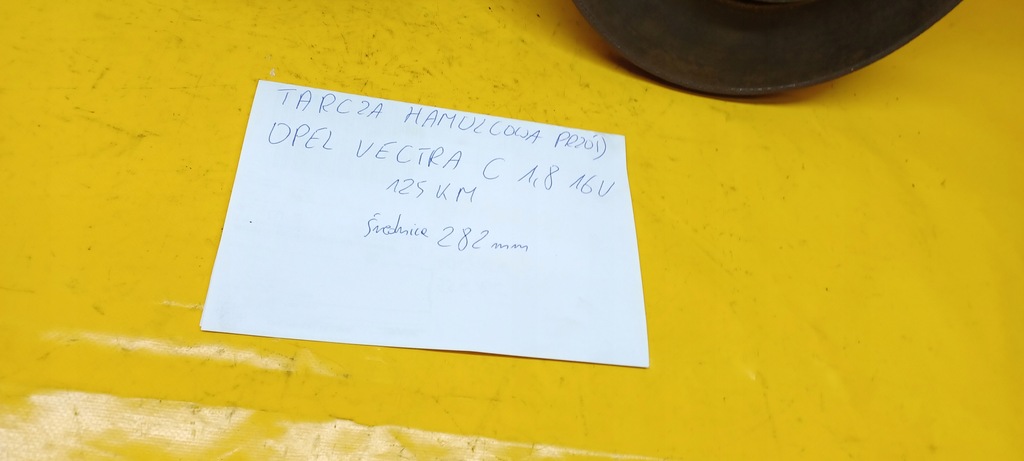 TARCZA HAMULCOWA PRZÓD
OPEL VECTRA C 1,8 16V
125 KM
średnica 282 mm